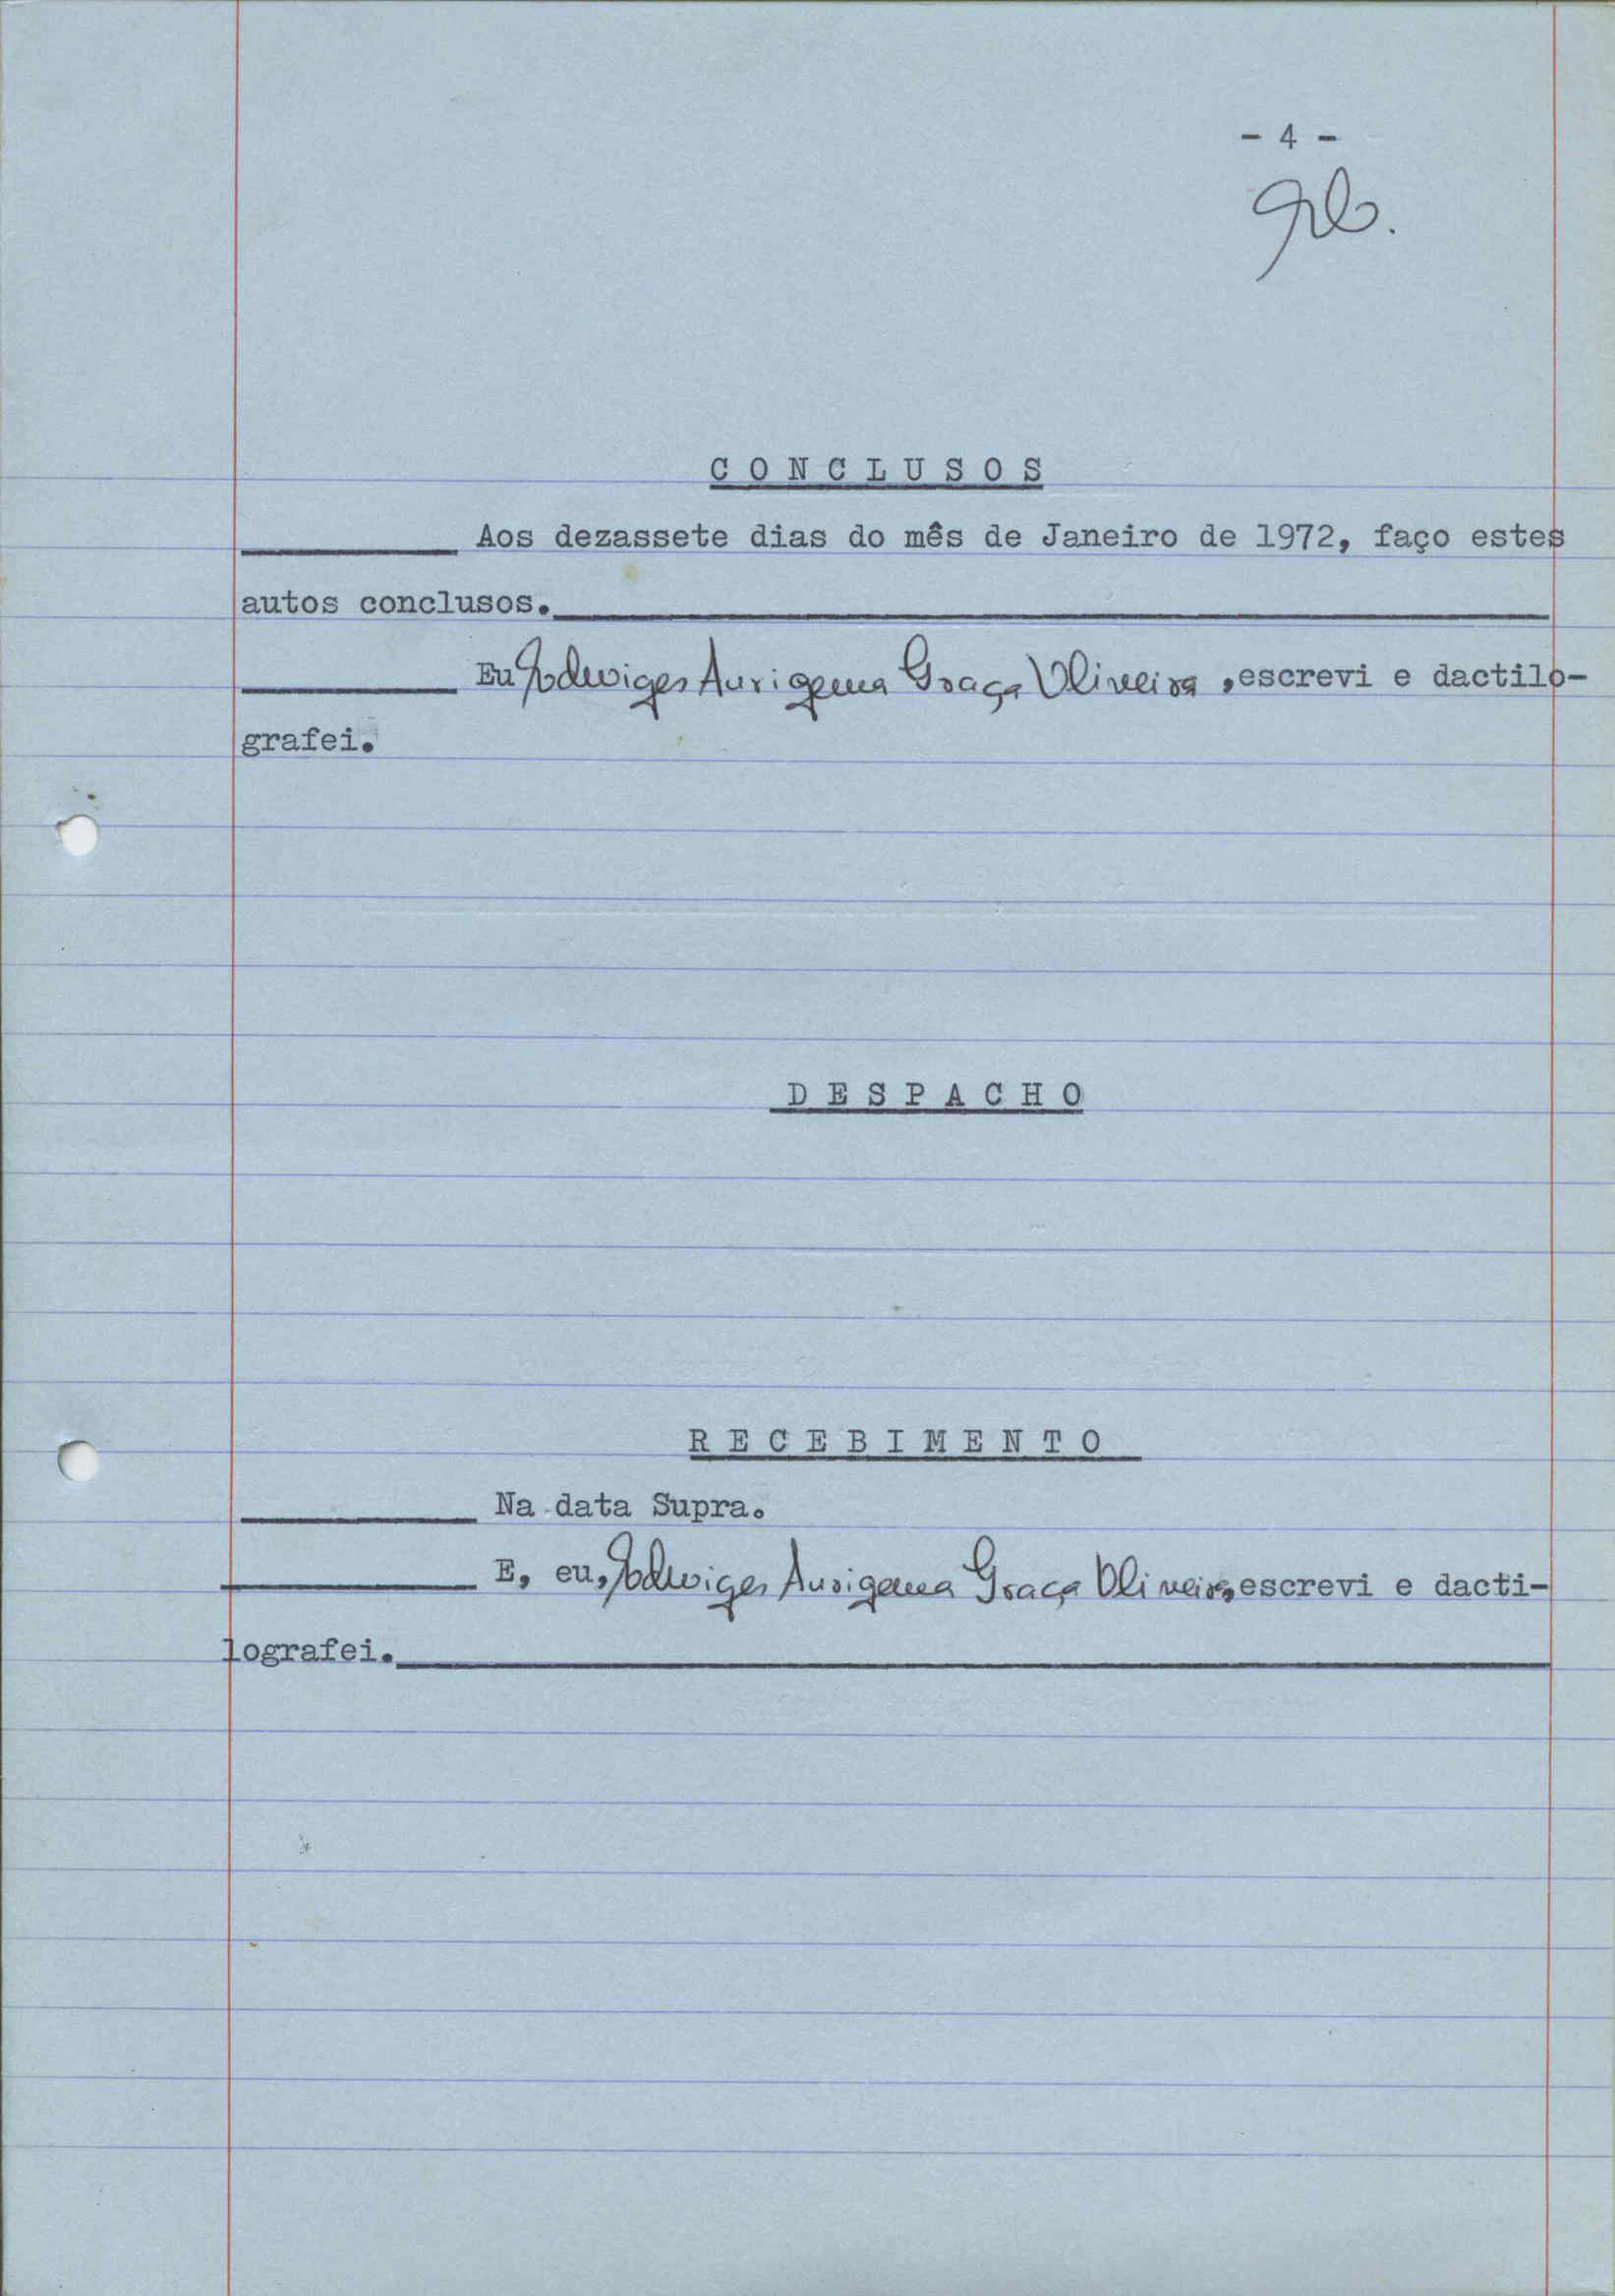 - 4 -
C O N C L U S O S
Aos dezassete dias do mês de Janeiro de 1972, faço estes
autos conclusos.
Eu Aurigema Graça Oliveira, escrevi e dactilo-
grafei.
D E S P A C H O
R E C E B I M E N T O
Na data Supra.
E, eu, Aurigema Graça Oliveira, escrevi e dacti-
lografei.